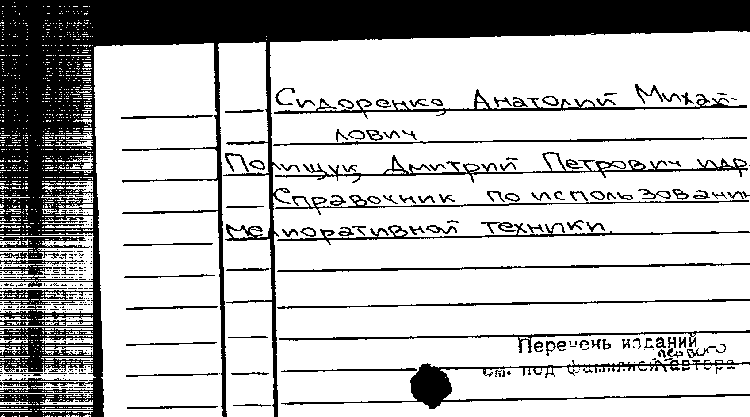 Сидоренко Анатолий Михай-
лович
Полищук Дмитрий Петрович и др
Справочник по использовани
мелиоративной техники.
Перечень изданий
см. под фамилией первого автора